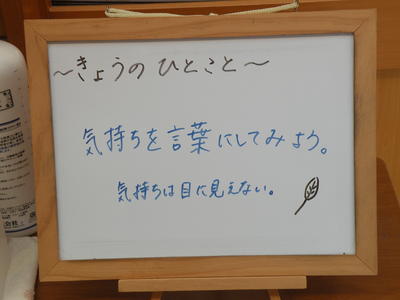 ～きょうのひとこと～
気持ちを言葉にしてみよう。
気持ちは目に見えない。